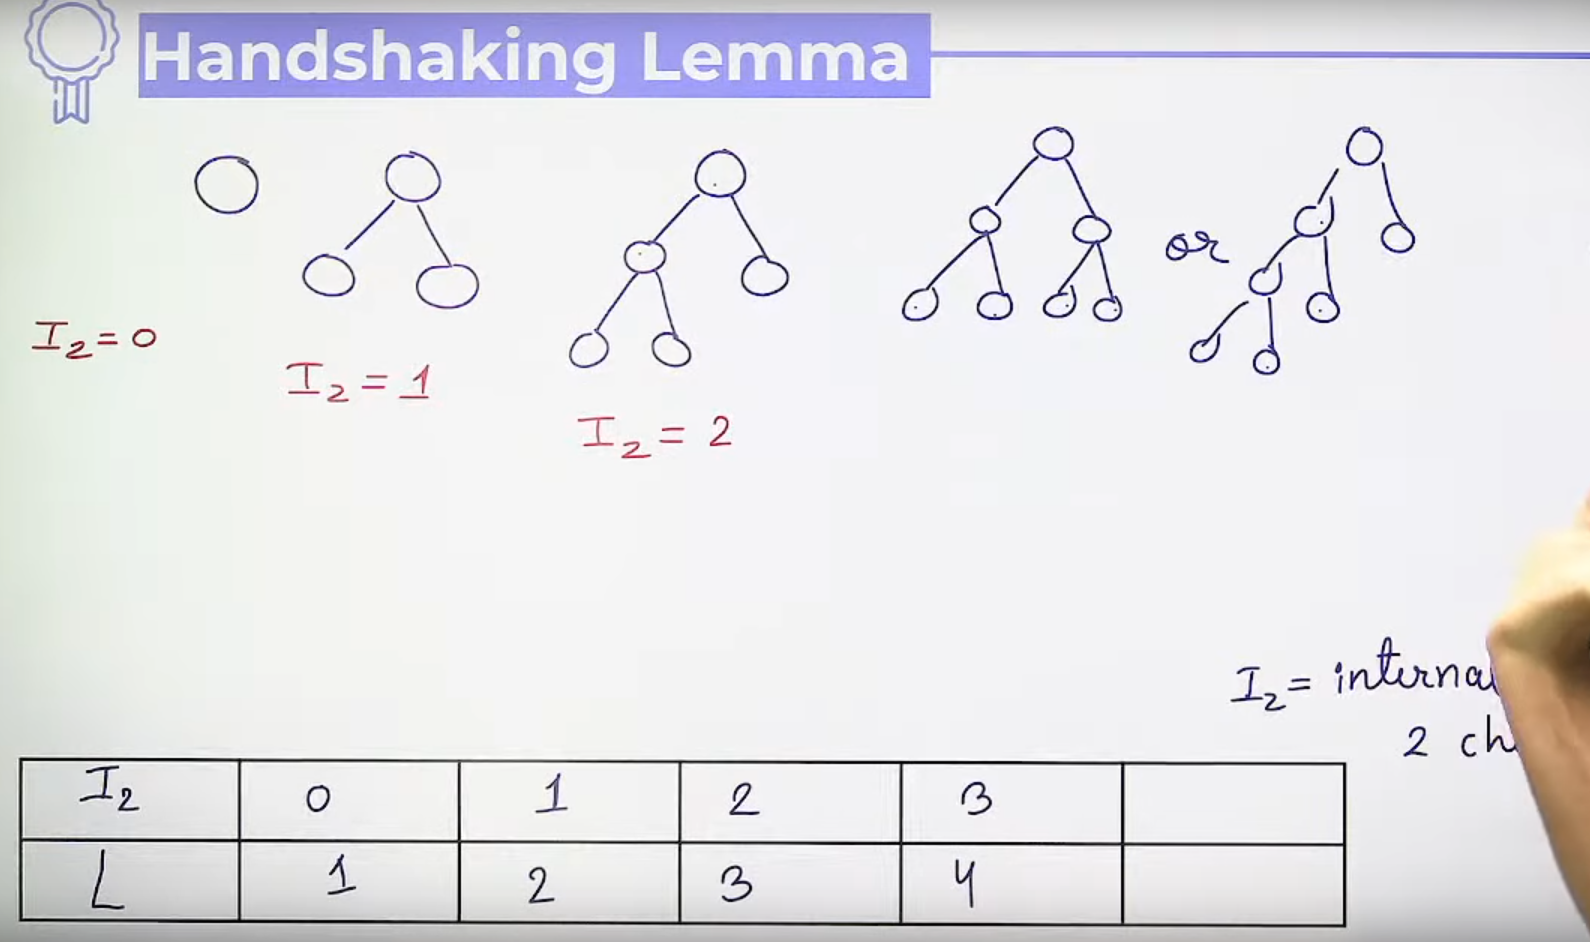 Handshaking Lemma
or
I₂ = 0
I₂ = 1
I₂ = 2
I₂ = interna
2 ch
I₂ 0 1 2 3
L 1 2 3 4